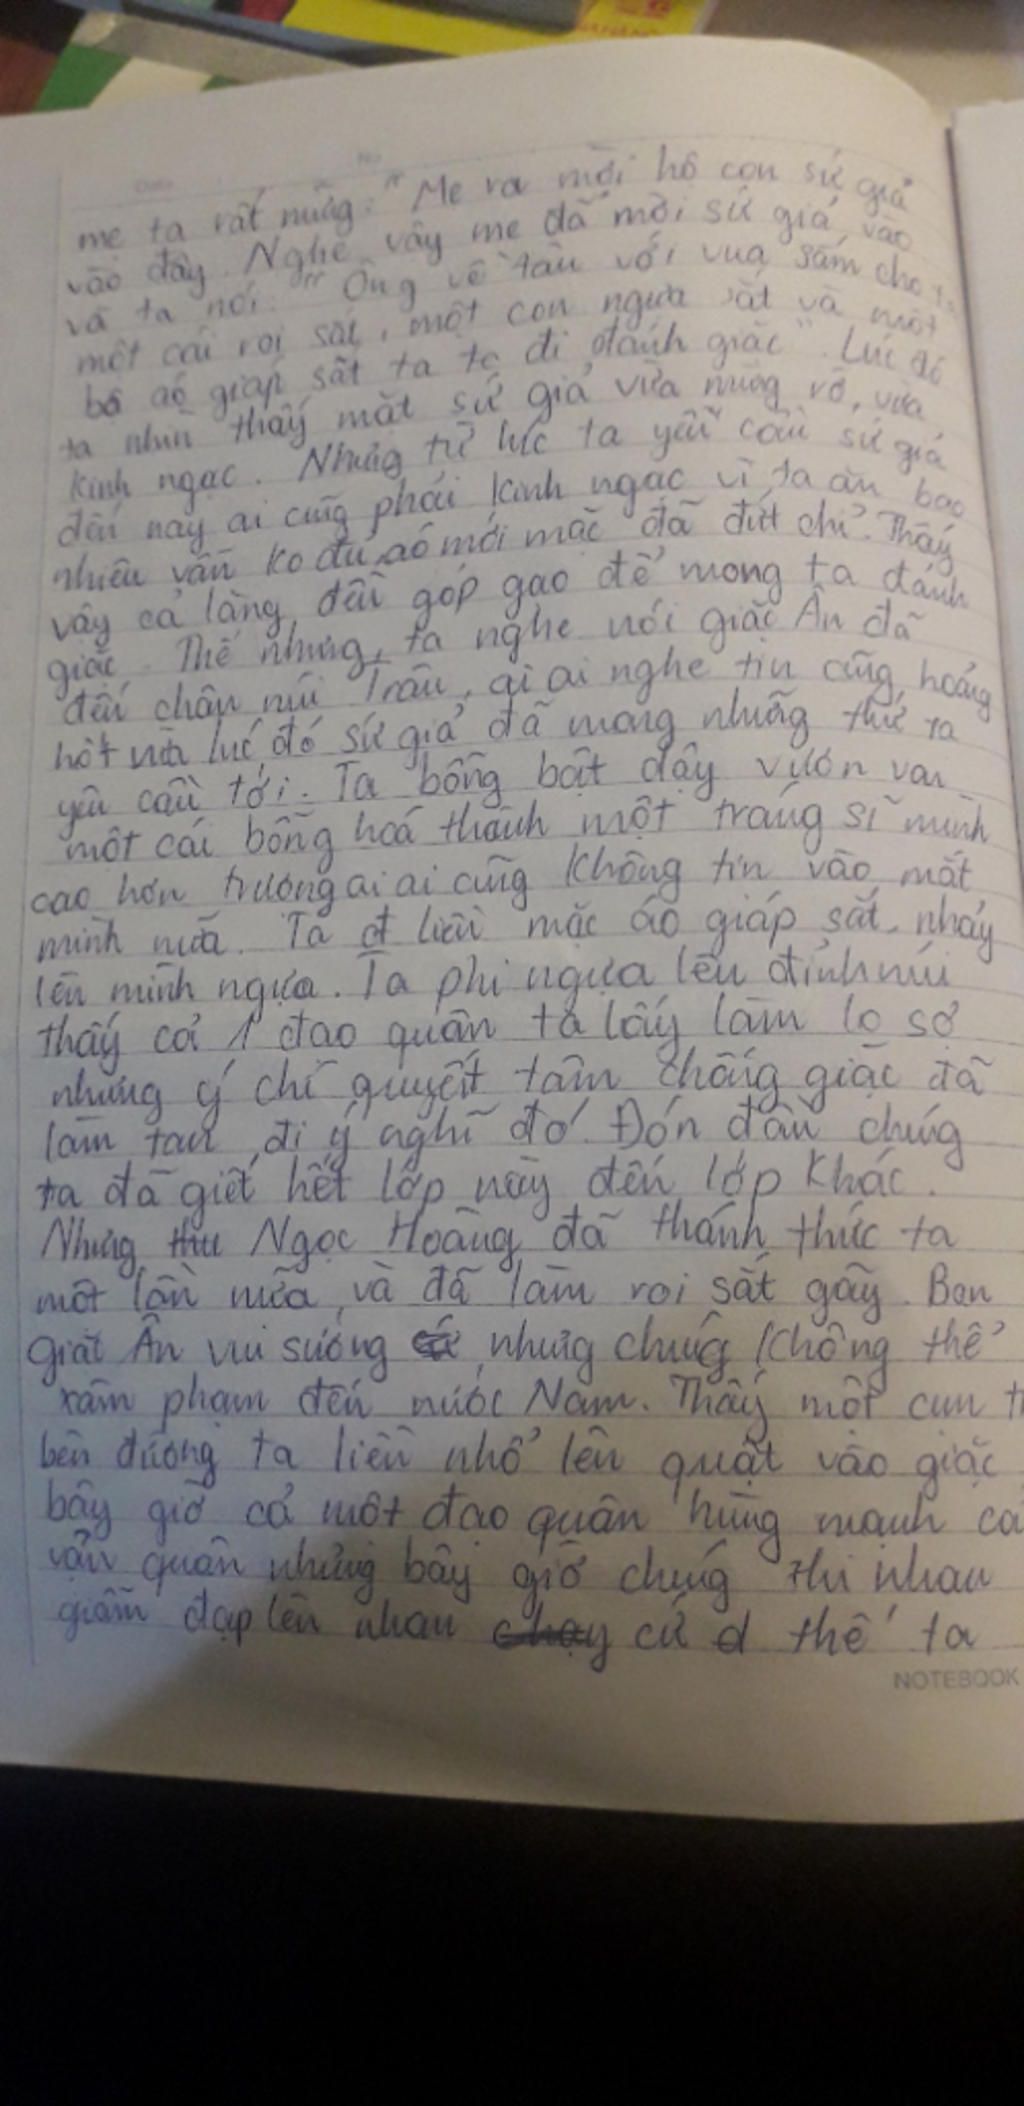 mẹ ta rất mừng: "Mẹ ra mời hộ con sứ giả
vào đây. Nghe vậy mẹ đã mời sứ giả vào
và ta nói: "Ông về tâu với vua sắm cho
một cái roi sắt, một con ngựa sắt và một
bộ áo giáp sắt ta đi đánh giặc". Lúc đó
ta nhìn thấy mặt sứ giả vừa mừng rỡ, vừa
kinh ngạc. Nhưng từ lúc ta yêu cầu sứ giả
đến nay ai cũng phải kinh ngạc vì ta ăn bao
nhiêu vẫn ko đủ, áo mới mặc đã đứt chỉ. Thấy
vậy cả làng đều góp gạo để mong ta đánh
giặc. Thế nhưng, ta nghe nói giặc Ân đã
đến chân núi Trâu, ai ai nghe tin cũng hoảng
hốt vừa lúc đó sứ giả đã mang những thứ ta
yêu cầu tới. Ta bỗng bật dậy vươn vai
một cái bỗng hoá thành một tráng sĩ mình
cao hơn trượng ai ai cũng không tin vào mắt
mình nữa. Ta liền mặc áo giáp sắt, nhảy
lên mình ngựa. Ta phi ngựa lên đỉnh núi
thấy cả 1 đạo quân ta lấy làm lo sợ
nhưng ý chí quyết tâm chống giặc đã
làm tan đi ý nghĩ đó. Đón đầu chúng
ta đã giết hết lớp này đến lớp khác.
Nhưng Ngọc Hoàng đã thánh thức ta
một lần nữa, và đã làm roi sắt gãy. Bọn
giặt Ân vui sướng nhưng chúng không thể
xâm phạm đến nước Nam. Thấy một cụm
bên đường ta liền nhổ lên quật vào giặc
bây giờ cả một đạo quân hùng mạnh cả
vạn quân nhưng bây giờ chúng thi nhau
giẫm đạp lên nhau cứ thế ta
NOTEBOOK